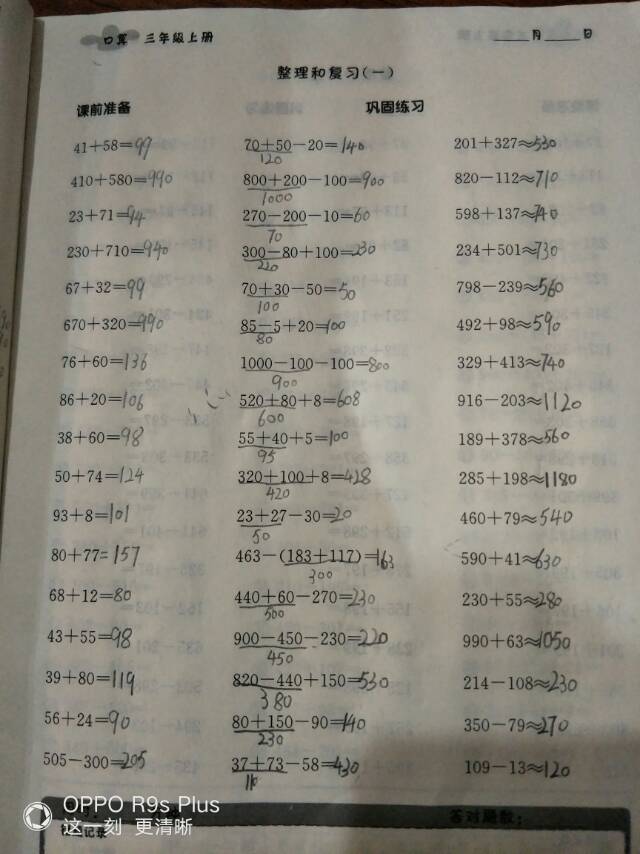 口算 三年级上册
月 日
整理和复习(一)
课前准备
巩固练习
41+58=99
410+580=990
23+71=94
230+710=940
67+32=99
670+320=990
76+60=136
86+20=106
38+60=98
50+74=124
93+8=101
80+77=157
68+12=80
43+55=98
39+80=119
56+24=90
505-300=205
70+50-20=140
120
800+200-100=900
1000
270-200-10=60
70
300-80+100=230
220
70+30-50=50
100
85-5+20=100
80
1000-100-100=800
900
520+80+8=608
600
55+40+5=100
95
320+100+8=428
420
23+27-30=20
50
463-(183+117)=163
300
440+60-270=230
500
900-450-230=220
450
820-440+150=530
380
80+150-90=140
230
37+73-58=430
110
201+327≈530
820-112≈710
598+137≈740
234+501≈730
798-239≈560
492+98≈590
329+413≈740
916-203≈1120
189+378≈560
285+198≈1180
460+79≈540
590+41≈630
230+55≈280
990+63≈1050
214-108≈230
350-79≈270
109-13≈120
答对题数:
记录
OPPO R9s Plus
这一刻 更清晰